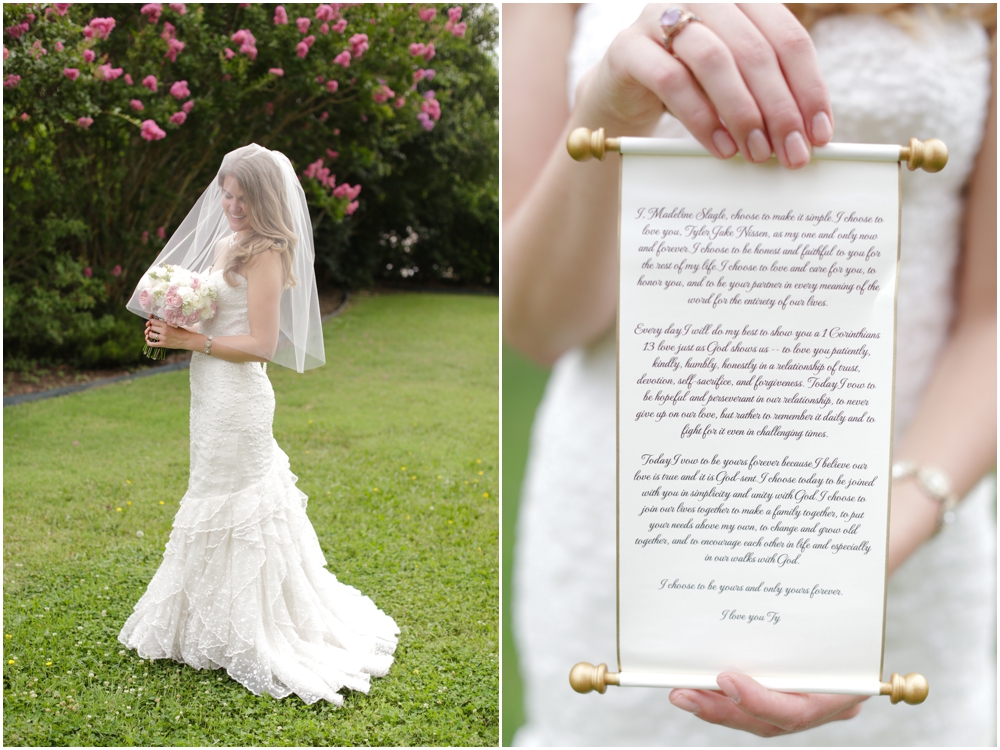 I, Madeline Slagle, choose to make it simple. I choose to
love you, Tyler Jake Nissen, as my one and only now
and forever. I choose to be honest and faithful to you for
the rest of my life. I choose to love and care for you, to
honor you, and to be your partner in every meaning of the
word for the entirety of our lives.
Every day I will do my best to show you a 1 Corinthians
13 love just as God shows us -- to love you patiently,
kindly, humbly, honestly in a relationship of trust,
devotion, self-sacrifice, and forgiveness. Today I vow to
be hopeful and perseverant in our relationship, to never
give up on our love, but rather to remember it daily and to
fight for it even in challenging times.
Today I vow to be yours forever because I believe our
love is true and it is God-sent. I choose today to be joined
with you in simplicity and unity with God. I choose to
join our lives together to make a family together, to put
your needs above my own, to change and grow old
together, and to encourage each other in life and especially
in our walks with God.
I choose to be yours and only yours forever.
I love you Ty